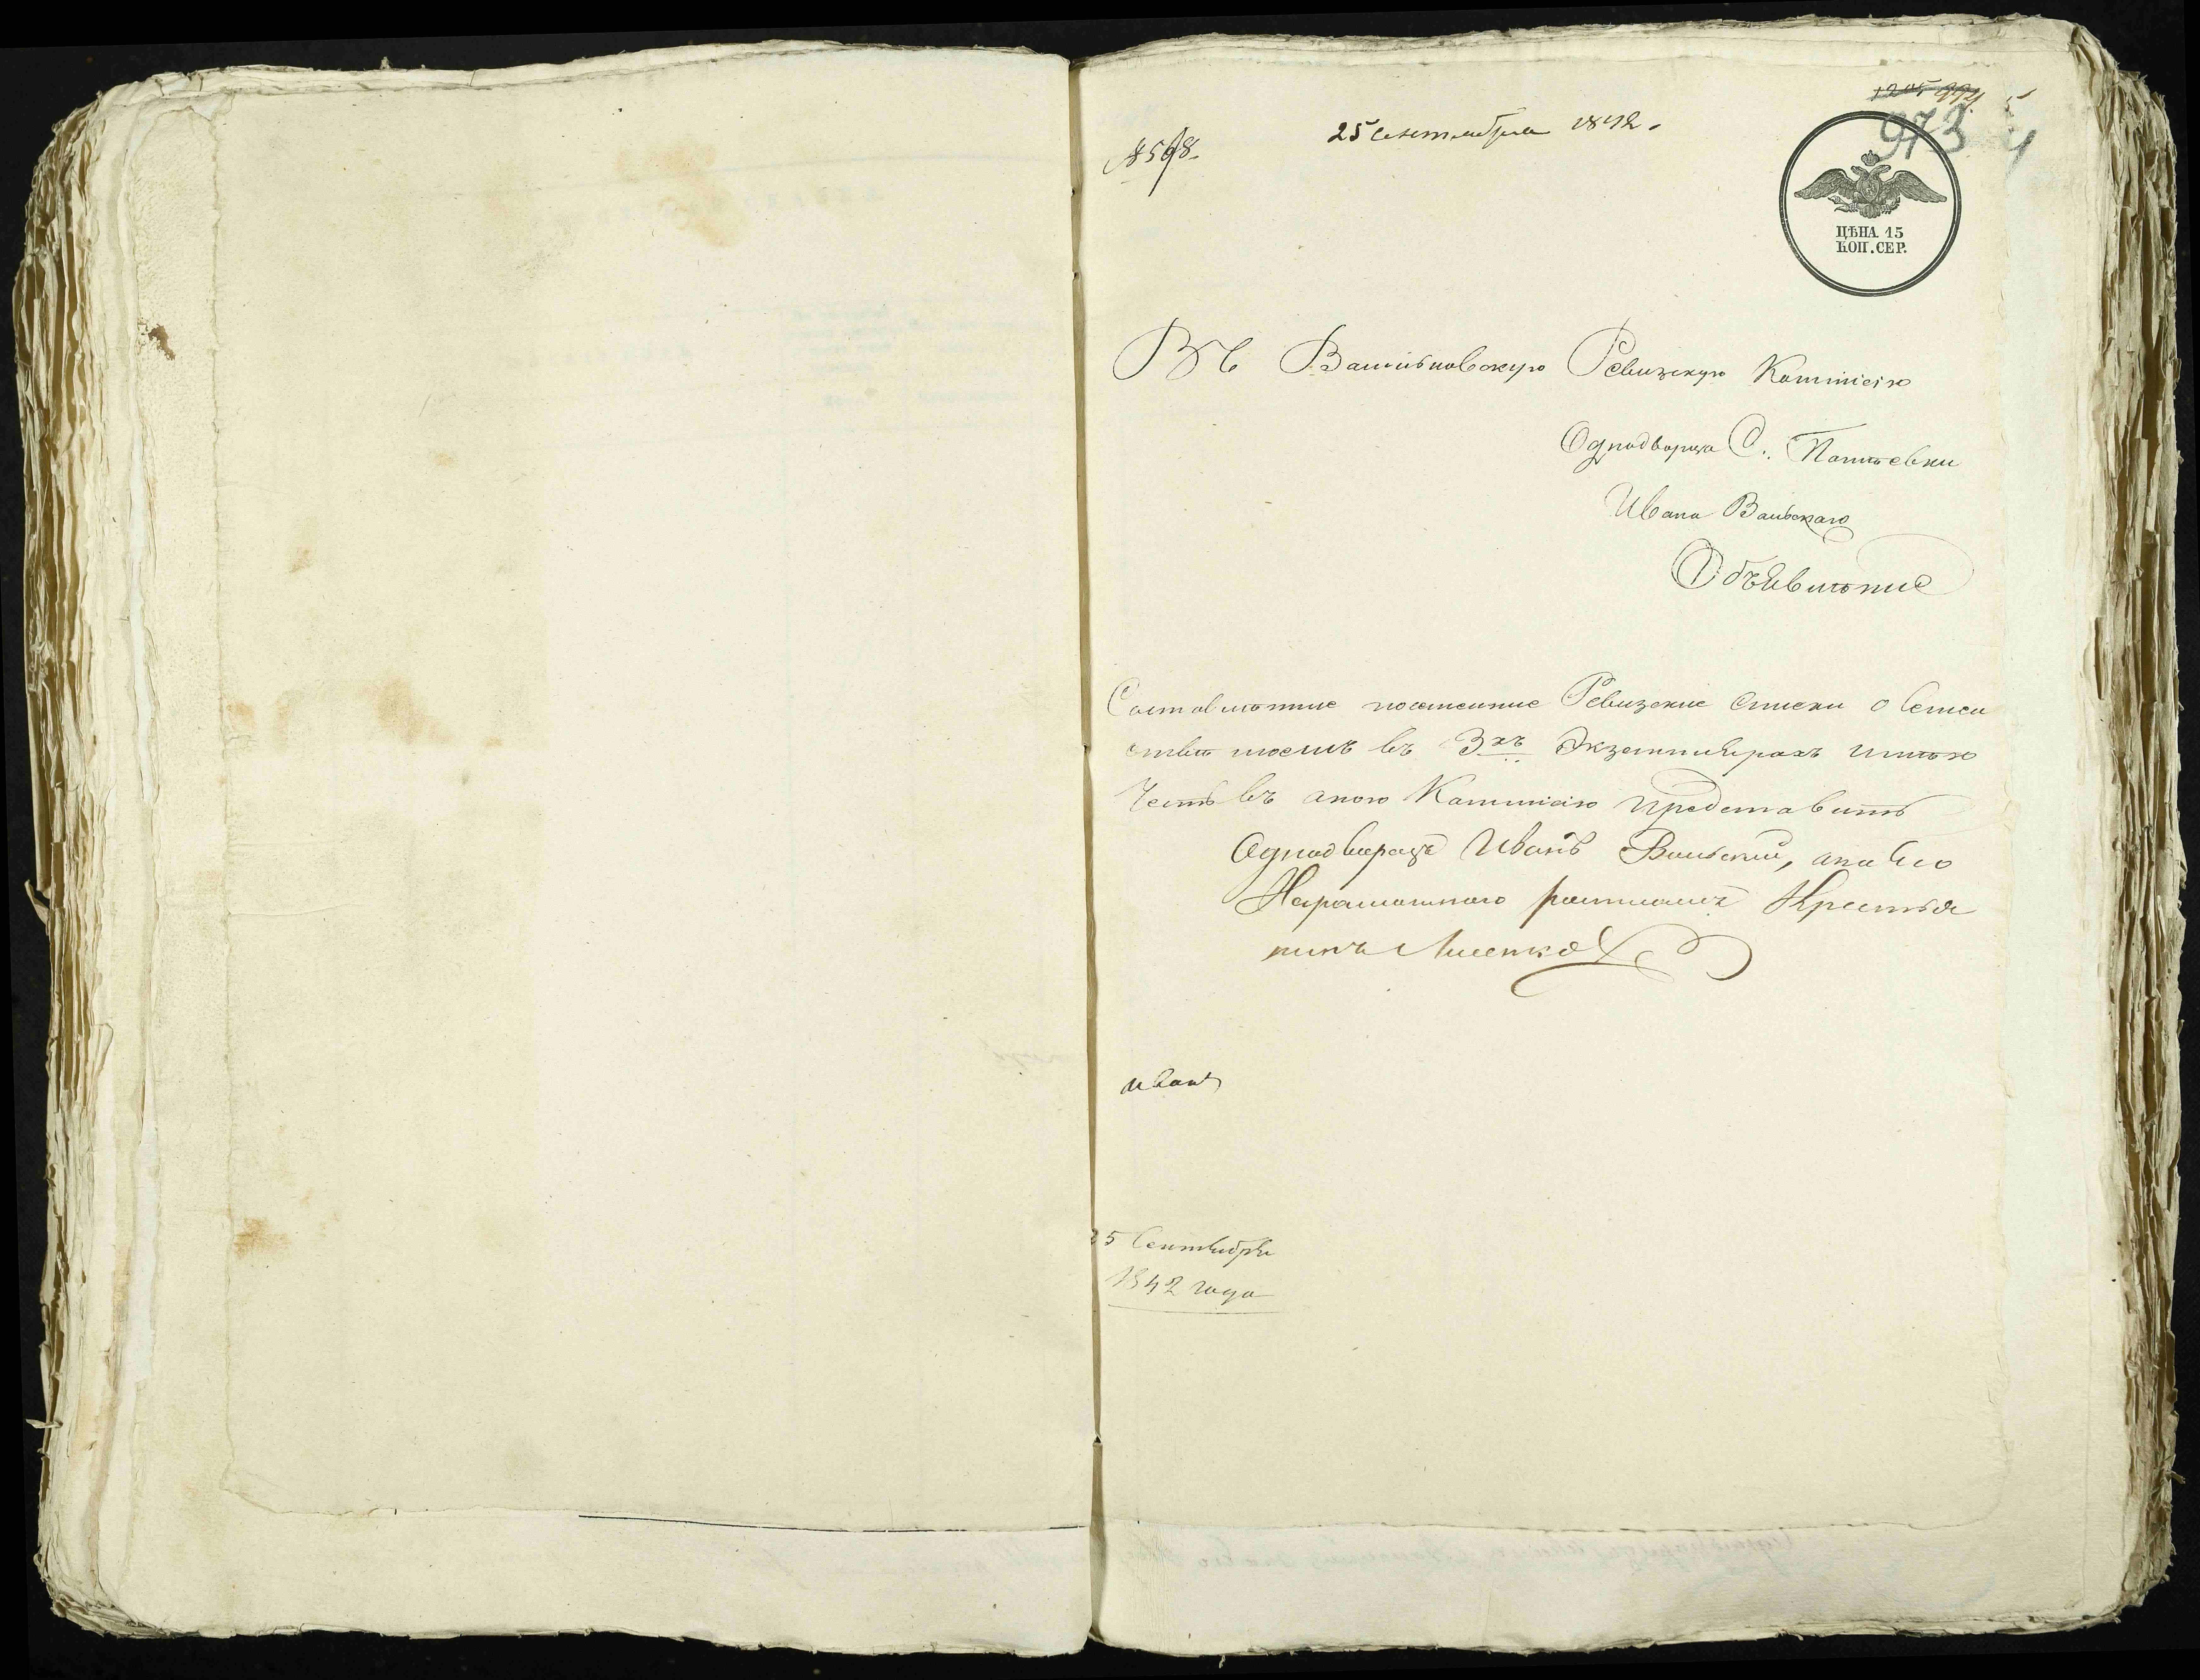 973
4
№ 598.
25 сентября 1842.
ЦѢНА 15
КОП. СЕР.
Въ Васильковскую Ревизскую Коммисію
Однодворца С.
Ивана Вальскаго
Объявленіе
Составленные посемейные Ревизские списки о Семей
ствѣ моемъ въ 3хъ Экземплярахъ имѣю
Честь въ оною Коммисію представить
Однодворецъ Иванъ Вальский, а на его
Неграмотного росписался Крестья
нинъ Лисенко
Иванъ
25 Сентября
1842 года